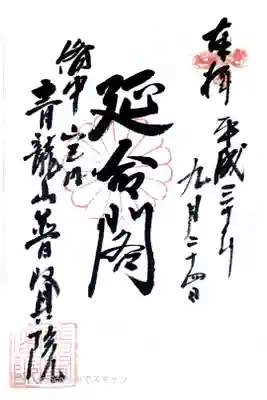 奉拝 平成三十年
九月二十四日
延命閣
備中宮内
青龍山普賢院
でスキャン